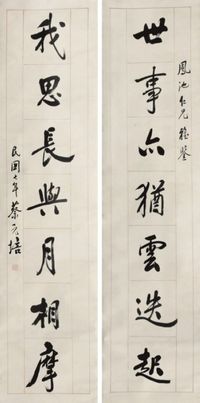 鳳池仁兄雅鑒
世事亦猶雲迭起
我思長與月相摩
民國七年蔡元培